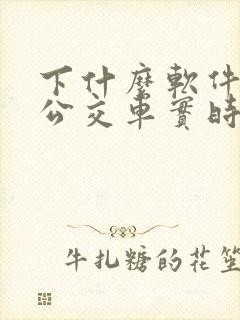 下什麼軟件
公交車實時
牛扎糖的花笙